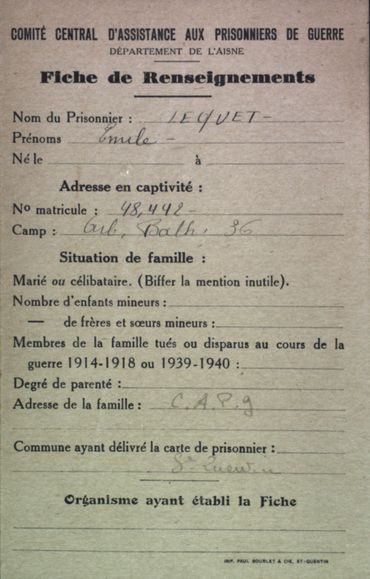 COMITÉ CENTRAL D'ASSISTANCE AUX PRISONNIERS DE GUERRE
DÉPARTEMENT DE L'AISNE
Fiche de Renseignements
Nom du Prisonnier : LEQUET -
Prénoms Emile -
Né le à
Adresse en captivité :
No matricule : 48,442 -
Camp : Arb. Balh. 36
Situation de famille :
Marié ou célibataire. (Biffer la mention inutile).
Nombre d'enfants mineurs :
— de frères et sœurs mineurs :
Membres de la famille tués ou disparus au cours de la
guerre 1914-1918 ou 1939-1940 :
Degré de parenté :
Adresse de la famille : C. A. P. g
Commune ayant délivré la carte de prisonnier :
St Quentin
Organisme ayant établi la Fiche
IMP. PAUL BOURLET & CIE, ST-QUENTIN